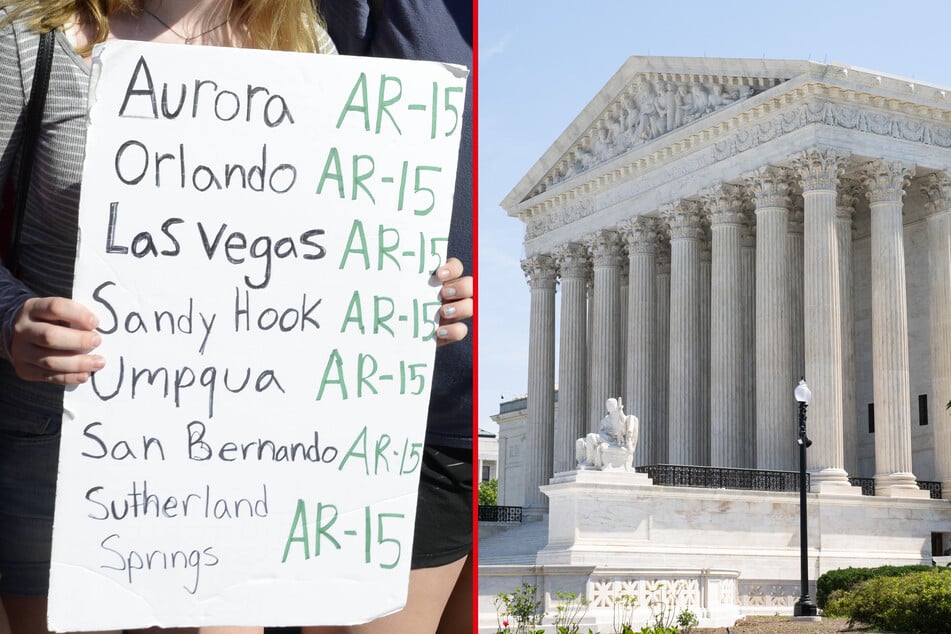 Aurora AR-15
Orlando AR-15
Las Vegas AR-15
Sandy Hook AR-15
Umpqua AR-15
San Bernando AR-15
Sutherland
Springs AR-15